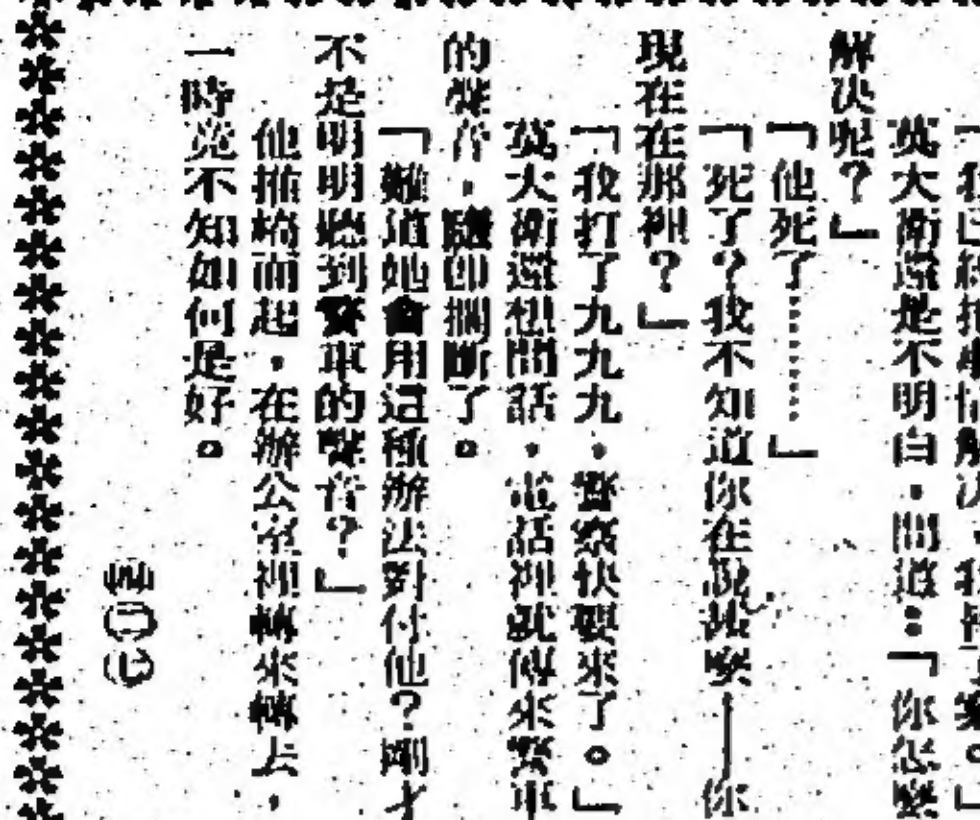 「我已經把事情解決，我傷了變。」
英大衛還是不明白，問道：「你怎麼
解決呢？」
「他死了………」
「死了？我不知道你在說甚麼——你
現在在那裡？」
「我打了九九九，警察快要來了。」
英大衛還想問話，電話裡就傳來警車
的聲音，隨即擱斷了。
「難道她會用這種辦法對付他？剛才
不是明明聽到警車的聲音？」
他推椅而起，在辦公室裡轉來轉去，
一時竟不知如何是好。